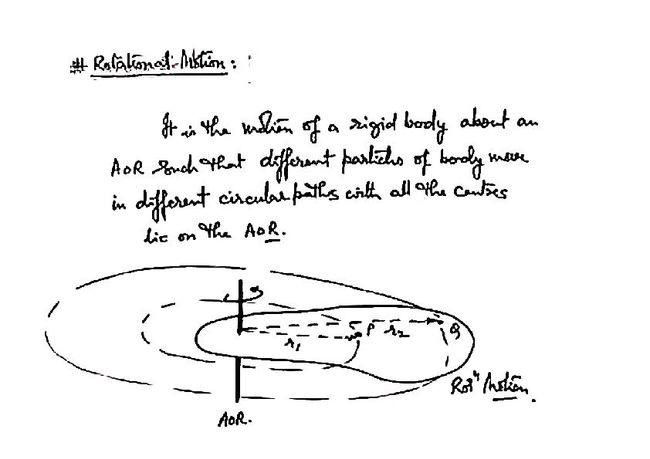 # Rotational Motion :
It is the motion of a rigid body about an
AOR such that different particles of body move
in different circular paths with all the centres
lie on the AOR.
r₁
P
r₂
Q
Rotⁿ Motion.
AOR.